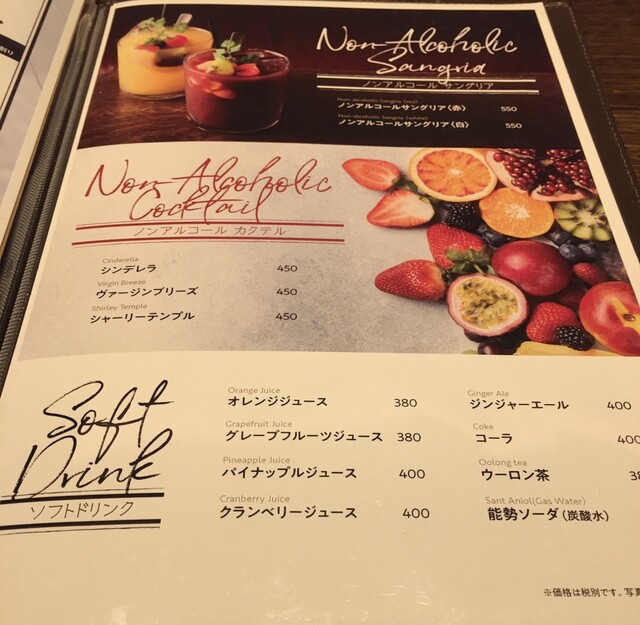 Non-Alcoholic
Sangria
ノンアルコール サングリア
Non-alcoholic Sangria (red)
ノンアルコールサングリア〈赤〉 550
Non-alcoholic Sangria (white)
ノンアルコールサングリア〈白〉 550
Non-Alcoholic
Cocktail
ノンアルコール カクテル
Cinderella
シンデレラ 450
Virgin Breeze
ヴァージンブリーズ 450
Shirley Temple
シャーリーテンプル 450
Soft
Drink
ソフトドリンク
Orange Juice
オレンジジュース 380
Grapefruit Juice
グレープフルーツジュース 380
Pineapple Juice
パイナップルジュース 400
Cranberry Juice
クランベリージュース 400
Ginger Ale
ジンジャーエール 400
Coke
コーラ 400
Oolong tea
ウーロン茶
Sant Aniol(Gas Water)
能勢ソーダ(炭酸水)
※価格は税別です。写真